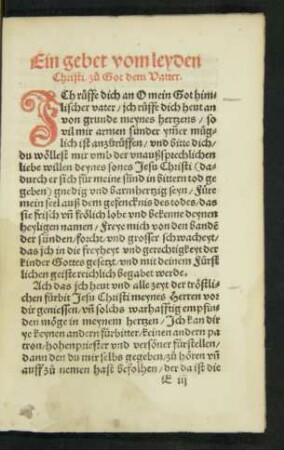 Ein gebet vom leyden
Christi. zů Got dem Vater.
ICh růffe dich an O mein Got him⸗
lischer vater / ich růffe dich heut an
von grunde meynes hertzens / so
vil mir armen sünder ym̃er müg⸗
lich ist anzůrůffen / vnd bitte dich /
du wöllest mir vmb der vnaußsprechlichen
liebe willen deynes sones Jesu Christi (das
durch er sich für meine sünd in bittern tod ge
geben) gnedig vnd barmhertzig seyn / Füre
mein seel auß dem gefencknis des todes / das
sie frisch vñ frölich lobe vnd bekenne deynen
heyligen namen / Freye mich von den bandẽ
der sünden / forcht vnd grosser schwacheyt /
das ich in die freyheyt vnd gerechtigkeyt der
kinder Gottes gesetzt / vnd mit deinem Fürst
lichen geiste reichlich begabet werde.
Ach das ich heut vnd alle zeyt der tröstli⸗
chen fürbit Jesu Christi meynes Herren vor
dir geniessen / vñ solchs warhafftig empfin⸗
den möge in meynem hertzen / Ich kan dir
ye keynen andern fürbitter / keinen andern pa
tron / hohenpriester vnd versöner fürstellen /
dann den du mir selbs gegeben / zů hören vñ
auff zů nemen hast befolhen / der da ist die
E iij